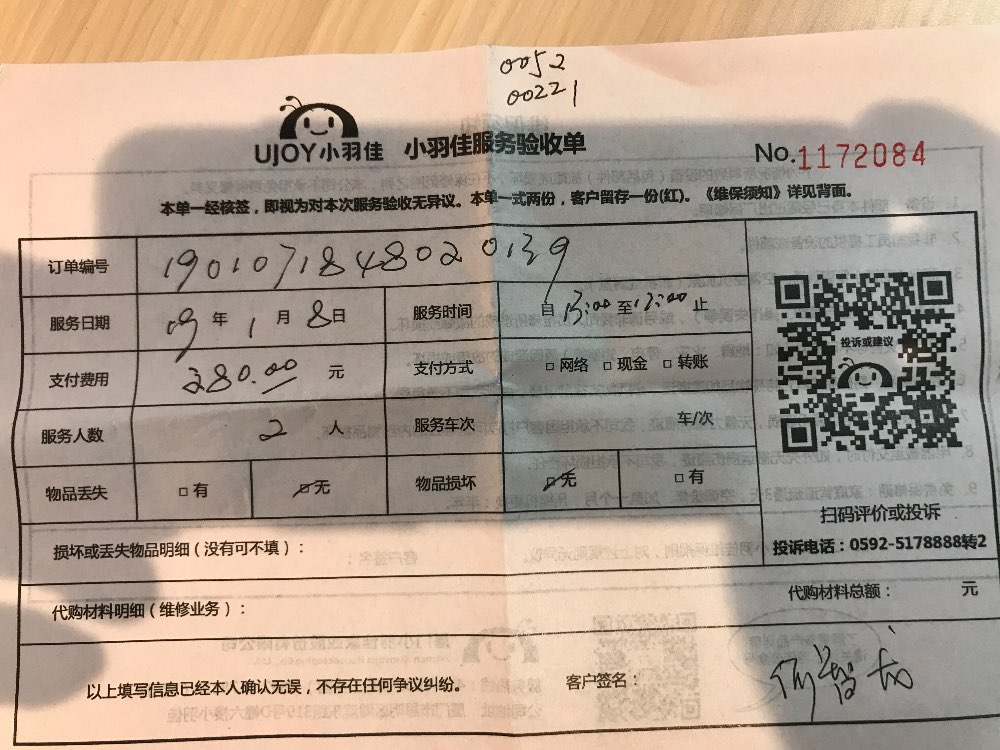 0052
00221
UJOY小羽佳 小羽佳服务验收单
No.1172084
本单一经核签，即视为对本次服务验收无异议。本单一式两份，客户留存一份(红)。《维保须知》详见背面。
订单编号 1901071848020139
服务日期 19年1月8日 服务时间 自13:00至17:00止
支付费用 380.00元 支付方式 □网络 □现金 □转账
投诉或建议
服务人数 2人 服务车次 车/次
物品丢失 □有 ☑无 物品损坏 ☑无 □有
扫码评价或投诉
损坏或丢失物品明细（没有可不填）：
投诉电话：0592-5178888转2
代购材料明细（维修业务）： 代购材料总额： 元
以上填写信息已经本人确认无误，不存在任何争议纠纷。 客户签名：